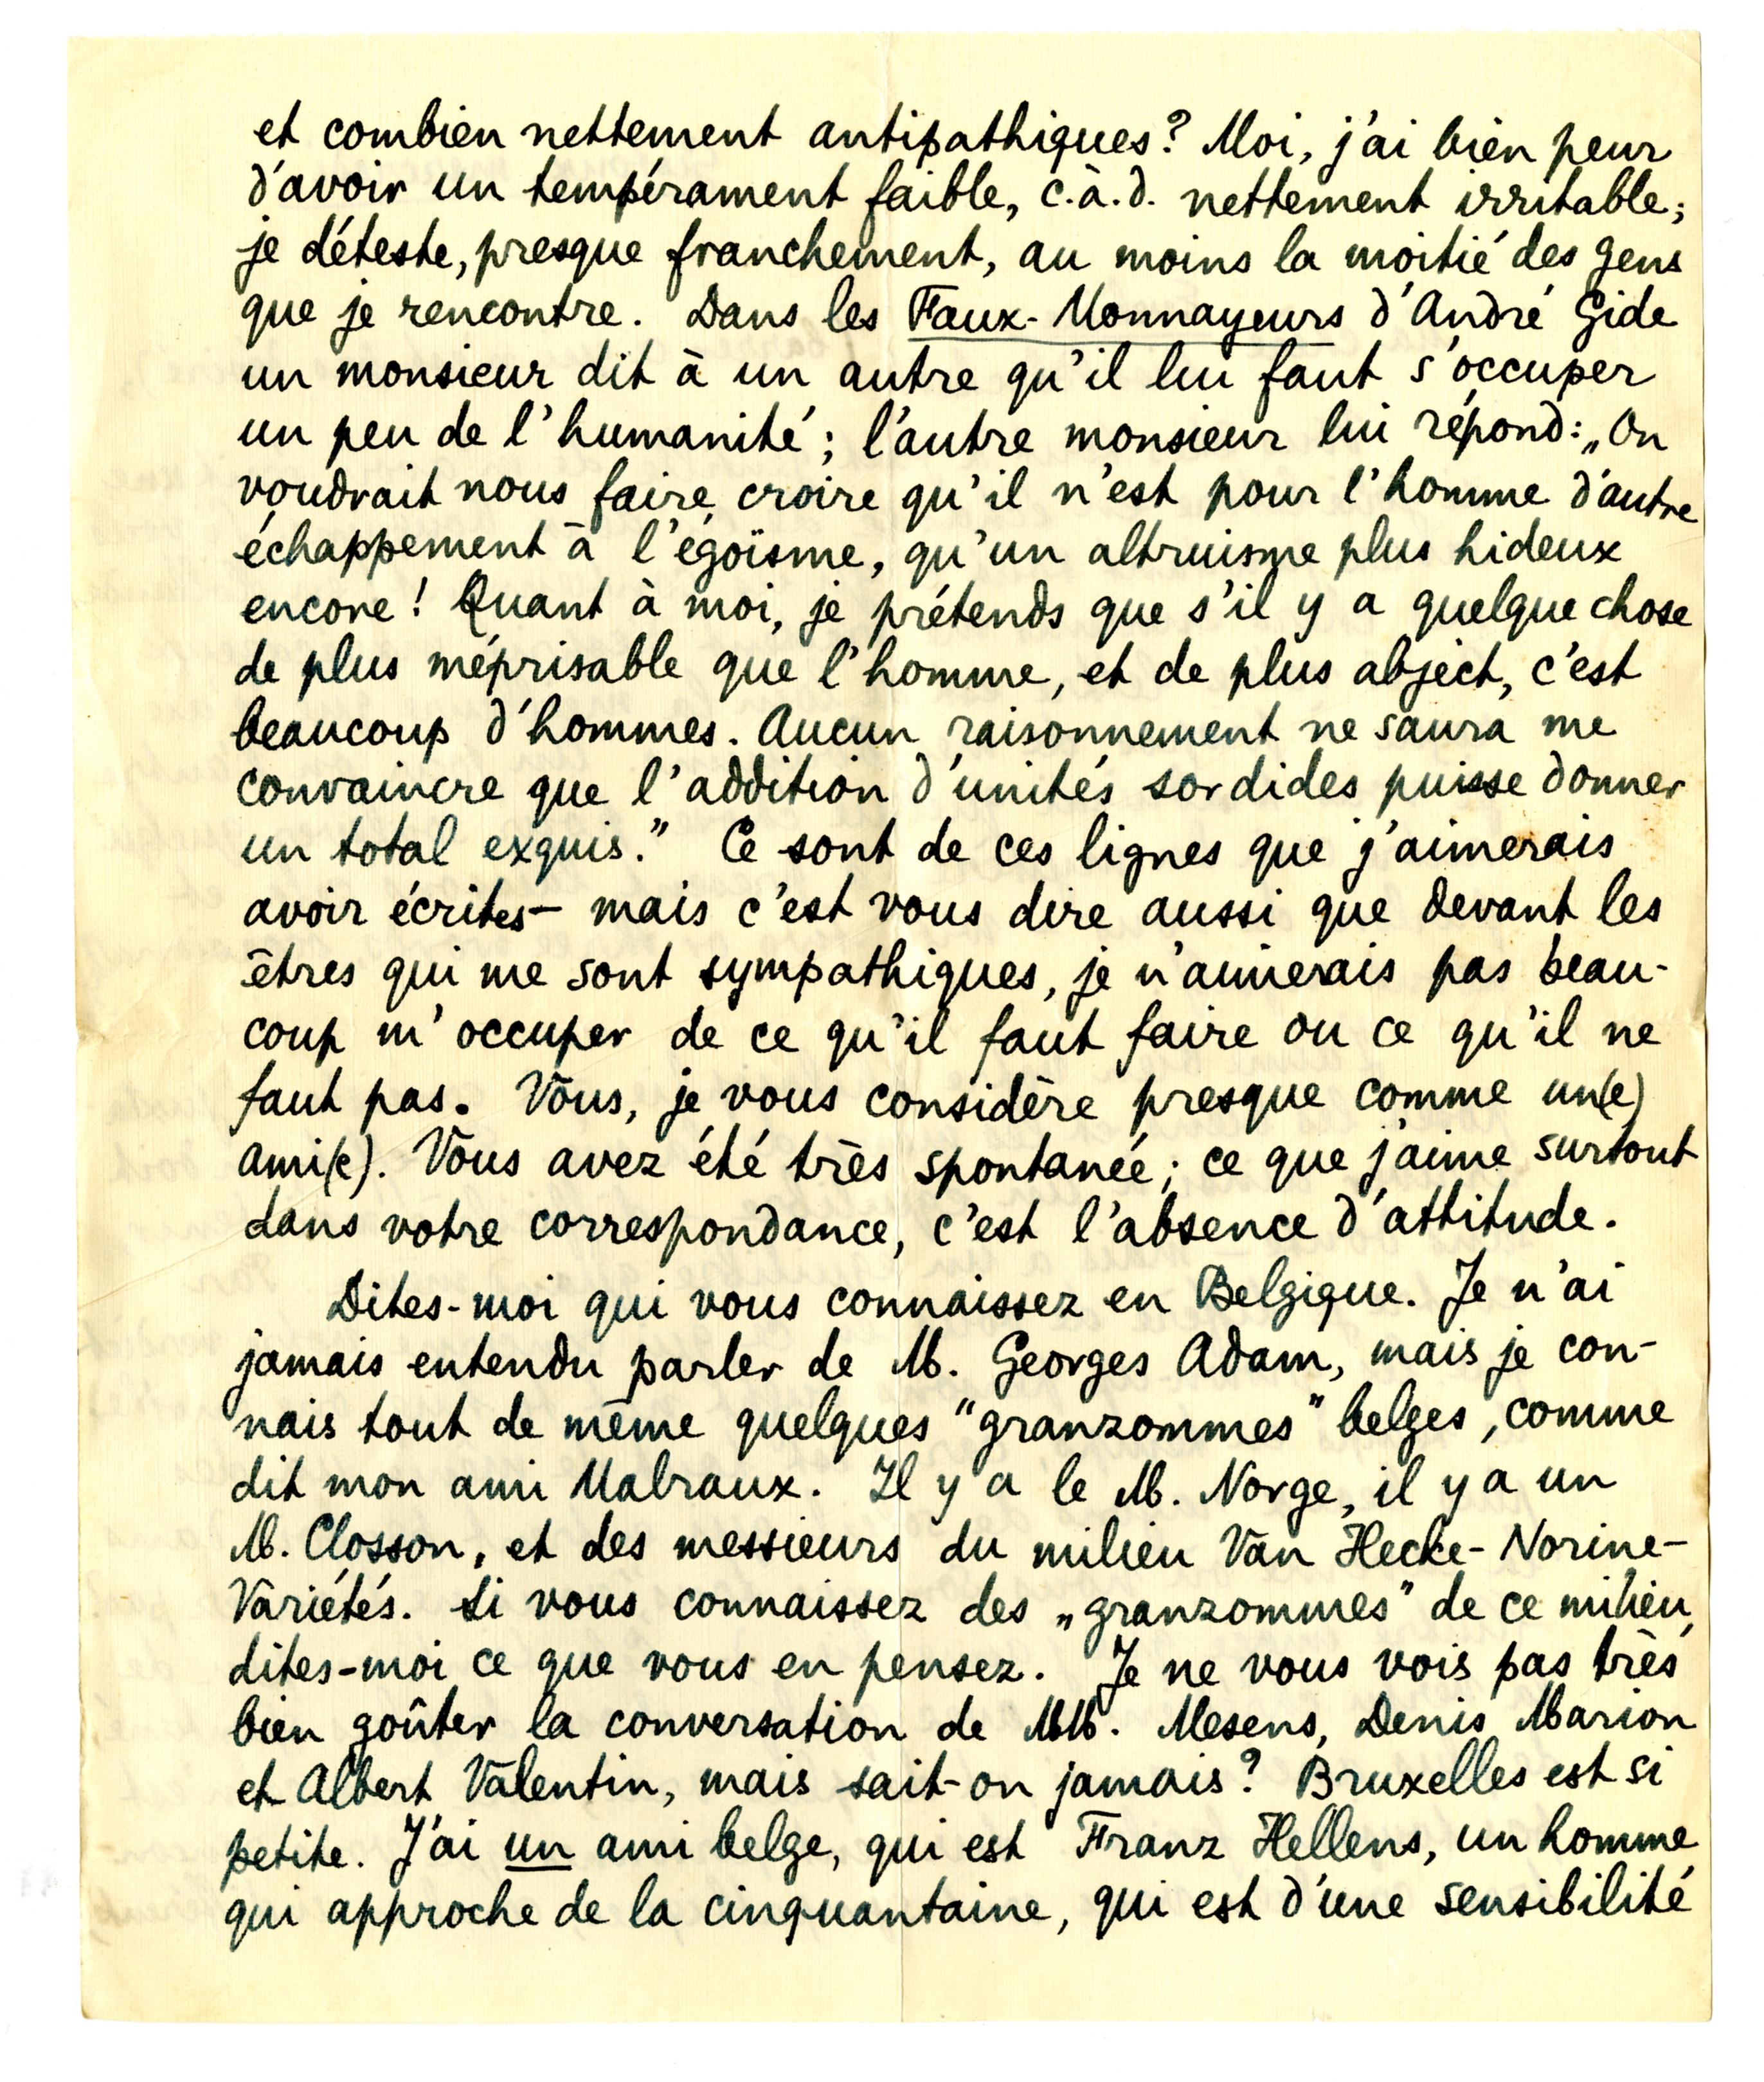 et combien nettement antipathiques? Moi, j'ai bien peur
d'avoir un tempérament faible, c.à.d. nettement irritable;
je déteste, presque franchement, au moins la moitié des gens
que je rencontre. Dans les Faux-Monnayeurs d'André Gide
un monsieur dit à un autre qu'il lui faut s'occuper
un peu de l'humanité; l'autre monsieur lui répond: „On
voudrait nous faire croire qu'il n'est pour l'homme d'autre
échappement à l'égoïsme, qu'un altruisme plus hideux
encore! Quant à moi, je prétends que s'il y a quelque chose
de plus méprisable que l'homme, et de plus abject, c'est
beaucoup d'hommes. Aucun raisonnement ne saura me
convaincre que l'addition d'unités sordides puisse donner
un total exquis.” Ce sont de ces lignes que j'aimerais
avoir écrites — mais c'est vous dire aussi que devant les
êtres qui me sont sympathiques, je n'aimerais pas beau-
coup m'occuper de ce qu'il faut faire ou ce qu'il ne
faut pas. Vous, je vous considère presque comme un(e)
ami(e). Vous avez été très spontanée; ce que j'aime surtout
dans votre correspondance, c'est l'absence d'attitude.
Dites-moi qui vous connaissez en Belgique. Je n'ai
jamais entendu parler de M. Georges Adam, mais je con-
nais tout de même quelques "granzommes" belges, comme
dit mon ami Malraux. Il y a le M. Norge, il y a un
M. Closson, et des messieurs du milieu Van Hecke-Norine-
Variétés. Si vous connaissez des „granzommes” de ce milieu,
dites-moi ce que vous en pensez. Je ne vous vois pas très
bien goûter la conversation de MM. Mesens, Denis Marion
et Albert Valentin, mais sait-on jamais? Bruxelles est si
petite. J'ai un ami belge, qui est Franz Hellens, un homme
qui approche de la cinquantaine, qui est d'une sensibilité